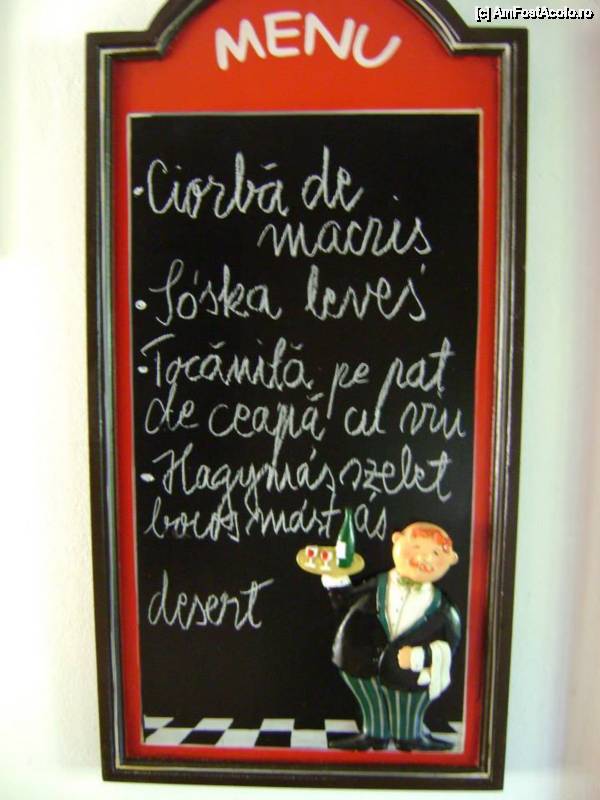 [c] AmFostAcolo.ro
MENU
• Ciorbă de
macriș
• Sóska leveś
• Tocăniță pe pat
de ceapă cu vin
• Hagymás szelet
boros mást ás
desert